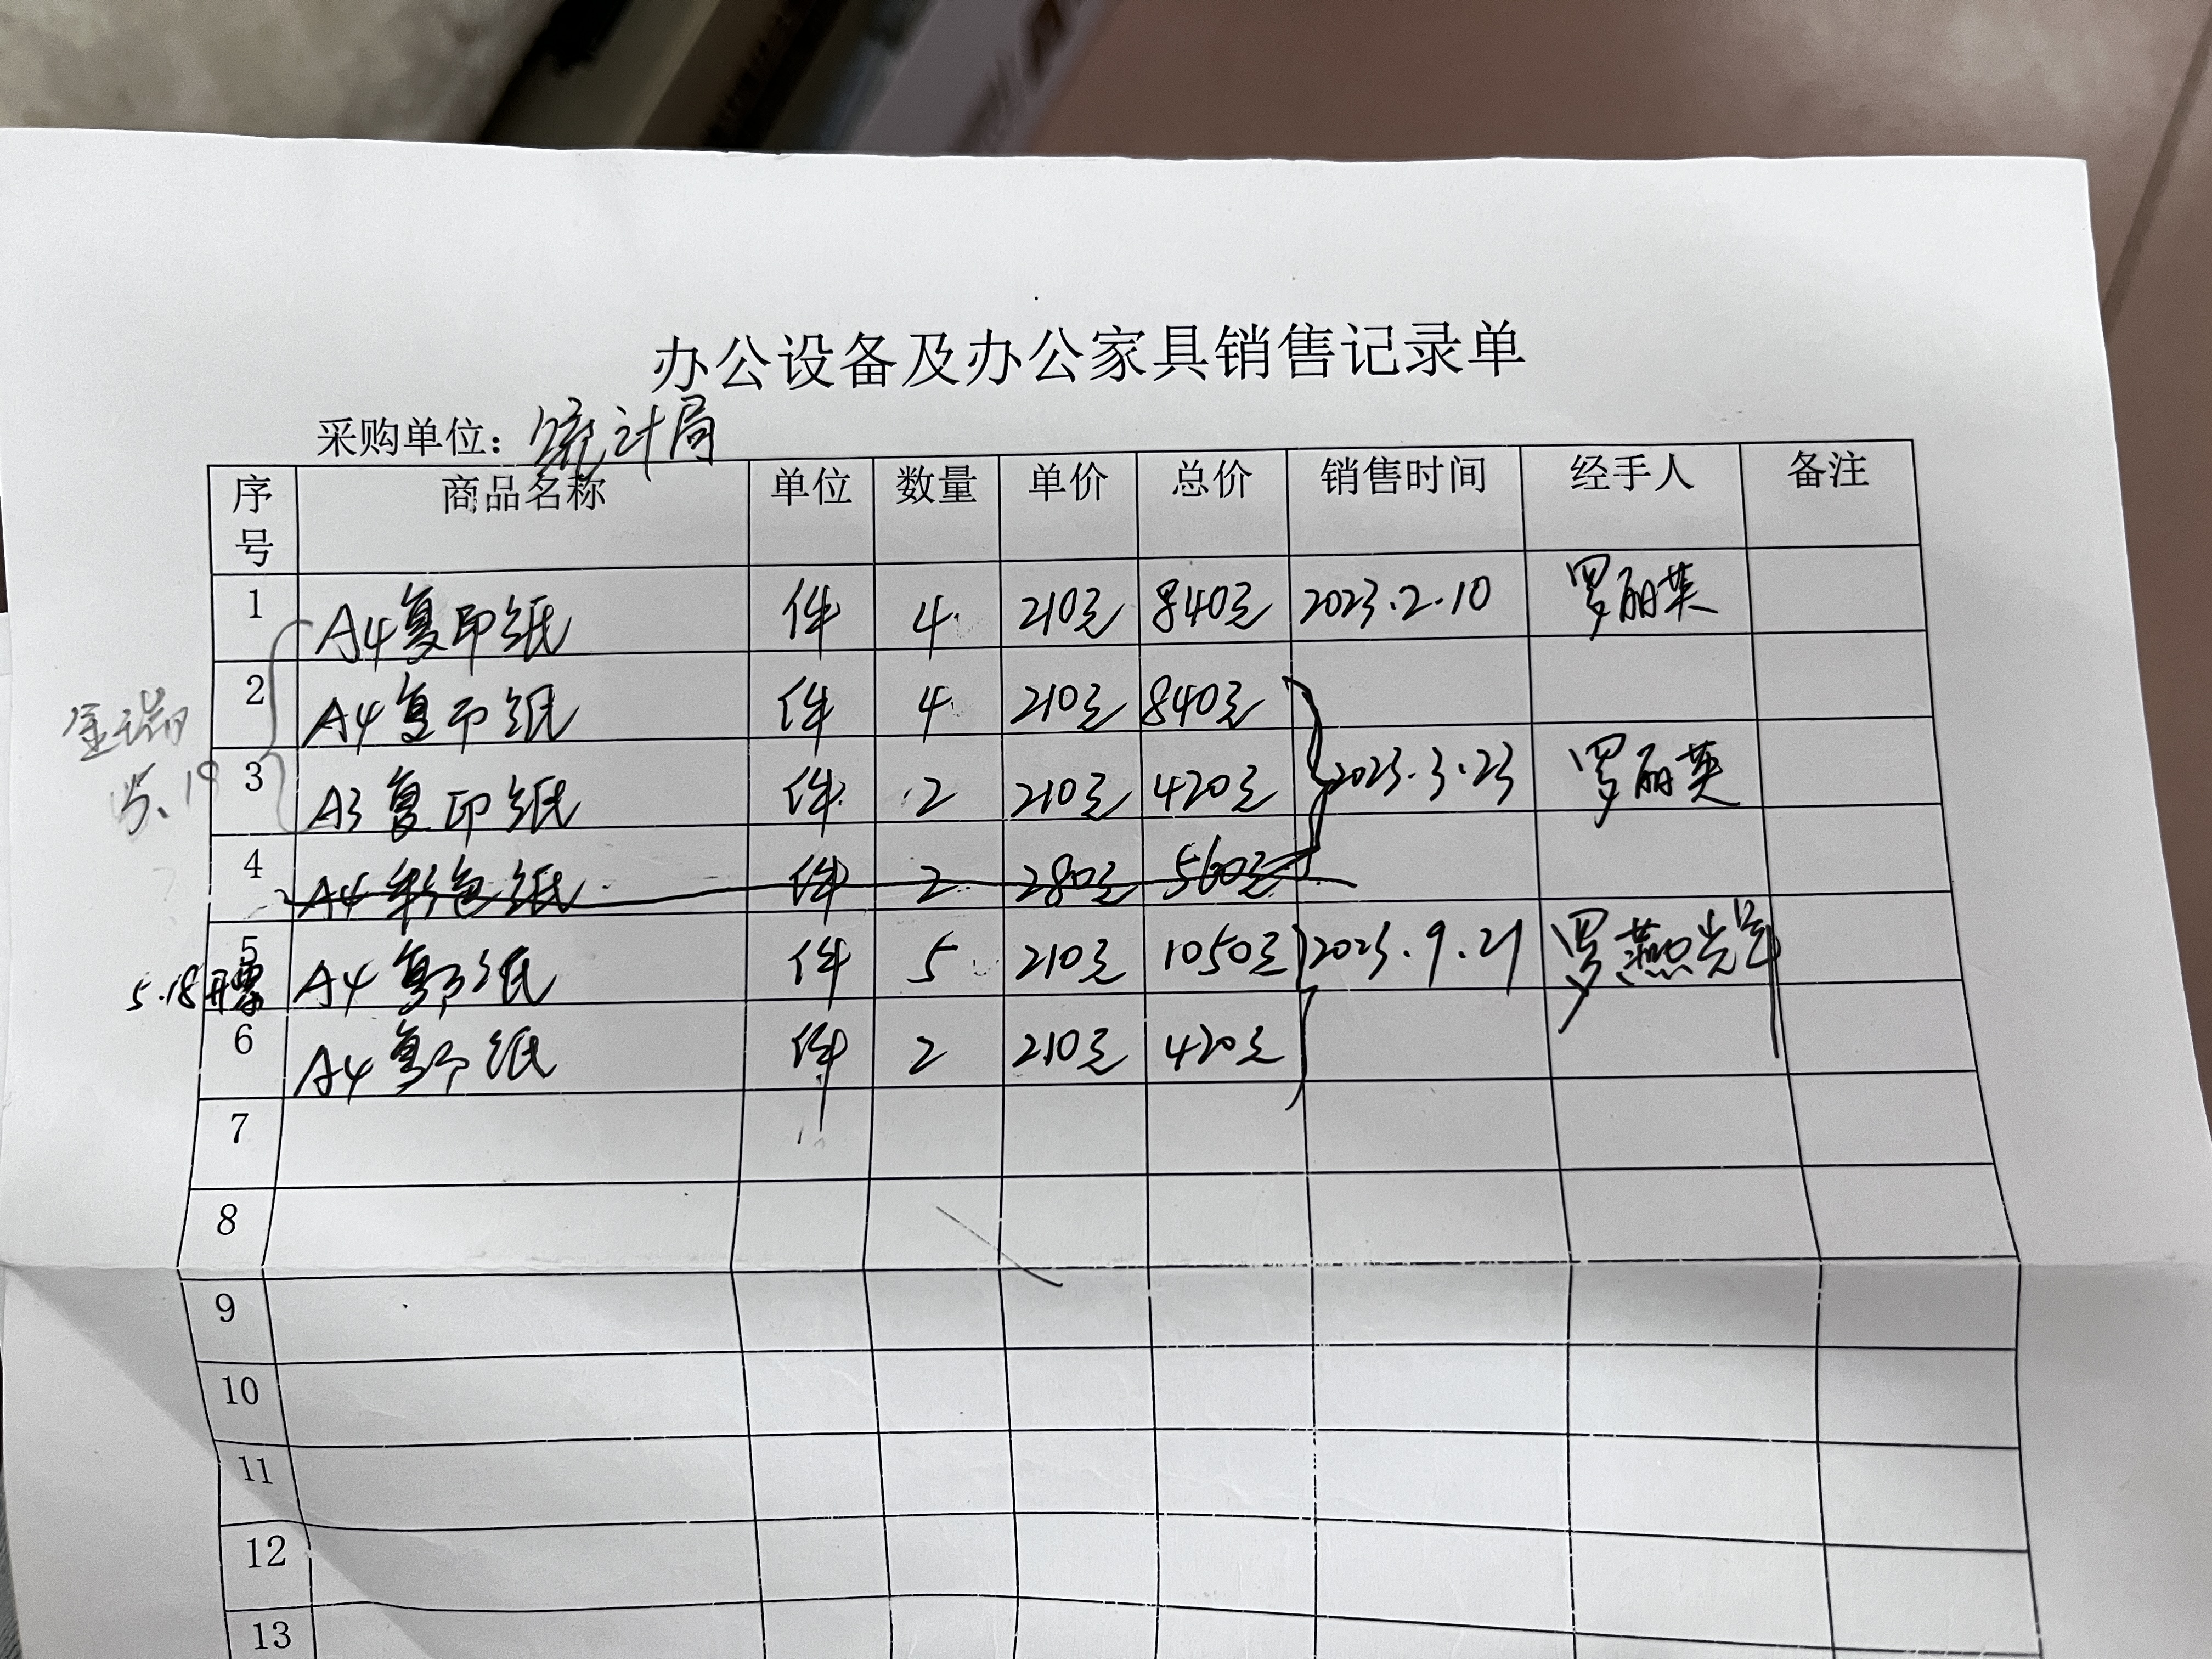 办公设备及办公家具销售记录单
采购单位：统计局
序号 商品名称 单位 数量 单价 总价 销售时间 经手人 备注
1 A4复印纸 件 4 210元 840元 2023.2.10 罗丽英
2 A4复印纸 件 4 210元 840元
金瑞
5.19
3 A3复印纸 件 2 210元 420元 2023.3.23 罗丽英
4 A4彩色纸 件 2 280元 560元
5 A4复印纸 件 5 210元 1050元 2023.9.21 罗燕
5.18开票
6 A4复印纸 件 2 210元 420元
7
8
9
10
11
12
13